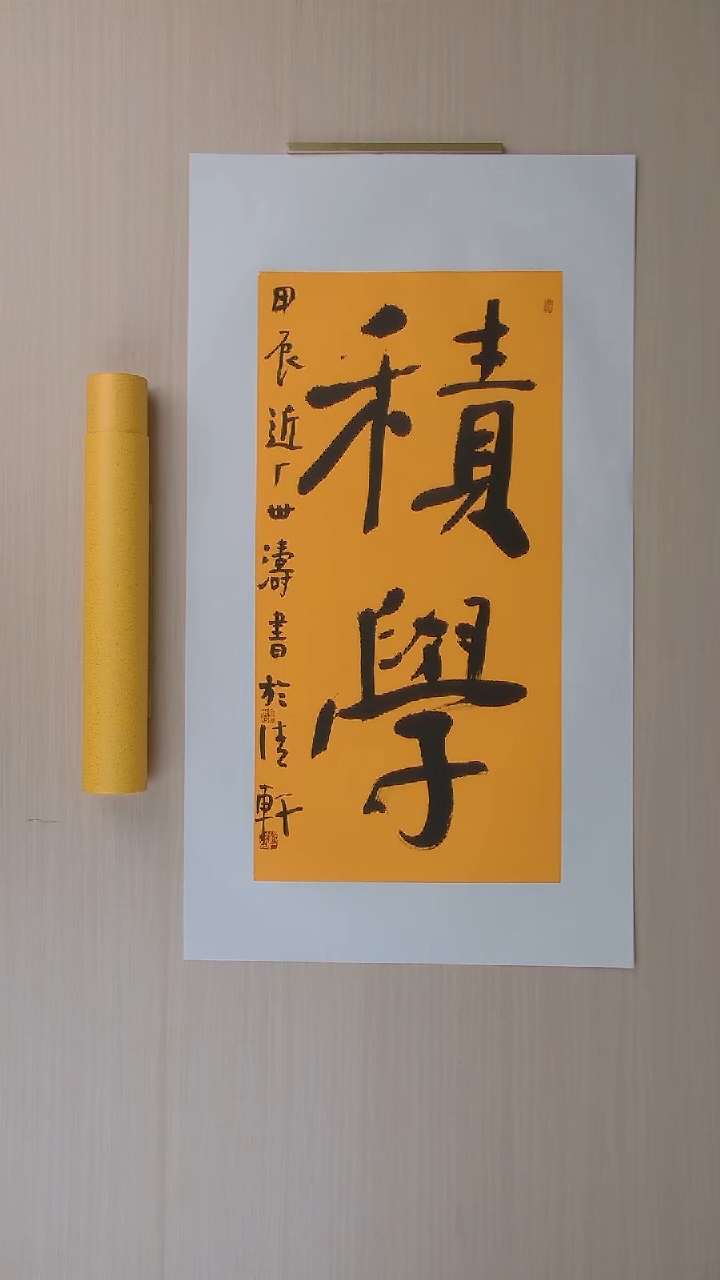 積學
甲辰近 卅濤書於清軒